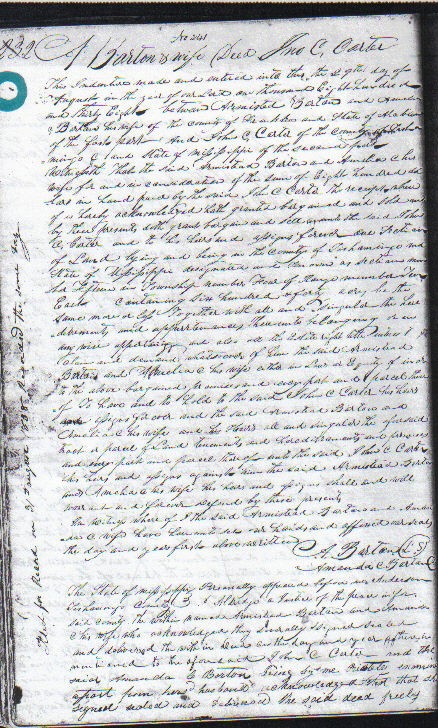 No 241
832 A Barton & wife Deed Jno C. Carter
This Indenture made and entered into this the 29th day of
August in the year of our Lord one thousand Eight hundred
and thirty Eight between Armisted Barton and Amanda
C Barton his wife of the county of Franklin and State of Alabama
of the first part And John C Carter of the county of Tisho
mingo C and State of Mississippi of the second part
Witnesseth That the said Armistead Barton and Amelia C his
wife for and in consideration of the sum of Eight hundred dol
lars in hand paid by the said John C Carter the receipt where
of is hereby acknowledged hath granted bargained and sold and
by these presents doth grant bargain and sell unto the said John
C. Carter and to his heirs and assigns forever one Section
of Land lying and being in the county of Tishomingo and
State of Mississippi designated and known as section num
ber Fifteen in Township number Four of Range number
East containing Six hundred & forty acres be the
same more or less Together with all and Singular the here
ditaments and appurtenances thereunto belonging or in
any wise appertaining and also all the Estate right title interest
claim and demand whatsoever of him the said Armistead
Barton and Amelia C his wife either in Law or Equity of in or
to the above bargained premises and every part and parcel there
of To have and to Hold to the said John C Carter his heirs
and assigns forever and the said Armistead Barton and
Amelia C his wife and the Heirs all and singular the aforesaid
tract or parcel of Land tenements and Hereditaments and premises
and every part and parcel thereof unto the said John C Carter
his heirs and assigns against him the said Armistead Barton
and Amelia C his wife his heirs and assigns shall and will
warrant and forever defend by these presents
In testimony where of I the said Armisted Barton and Aman
da C wife have hereunto set our hands and affixed our seals
the day and year first above written
A. Barton (L S)
Amanda C Barton
The State of Mississippi Personally appeared before me Anderson
Tishomingo County } a Justice of the peace in for
said county the within named Armistead Barton and Amanda
C his wife who acknowledged they severally signed sealed
and delivered the within Deed on the day and year therein
mentioned to the aforesaid John C Carter and the
said Amanda C Barton being by me private examined
apart from her husband acknowledged that she
signed sealed and delivered the said deed freely
Filed for Record on 31 August 1838 & Recorded the same day